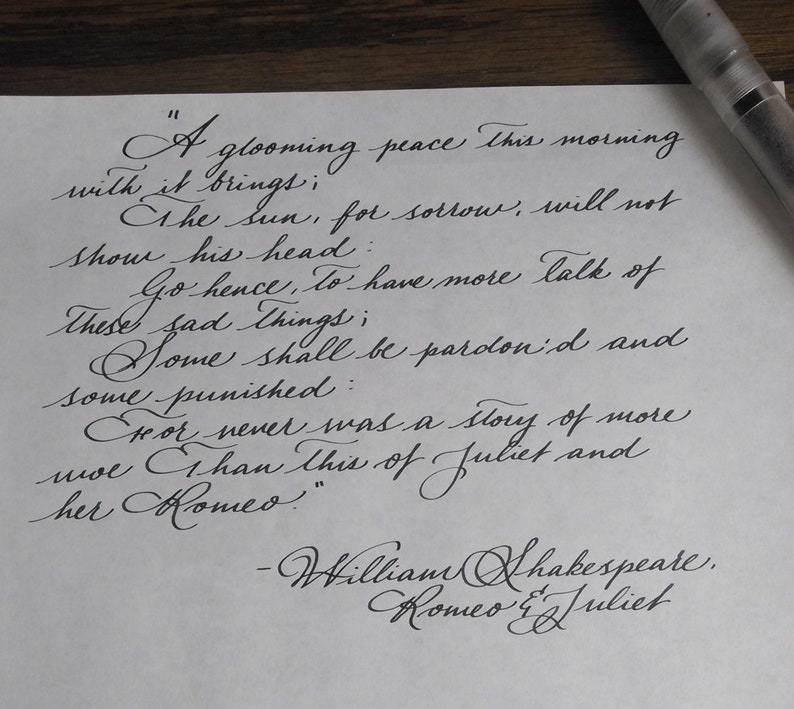 "A glooming peace this morning
with it brings;
The sun, for sorrow, will not
show his head:
Go hence, to have more talk of
these sad things;
Some shall be pardon'd and
some punished:
For never was a story of more
woe Than this of Juliet and
her Romeo."
-William Shakespeare,
Romeo & Juliet